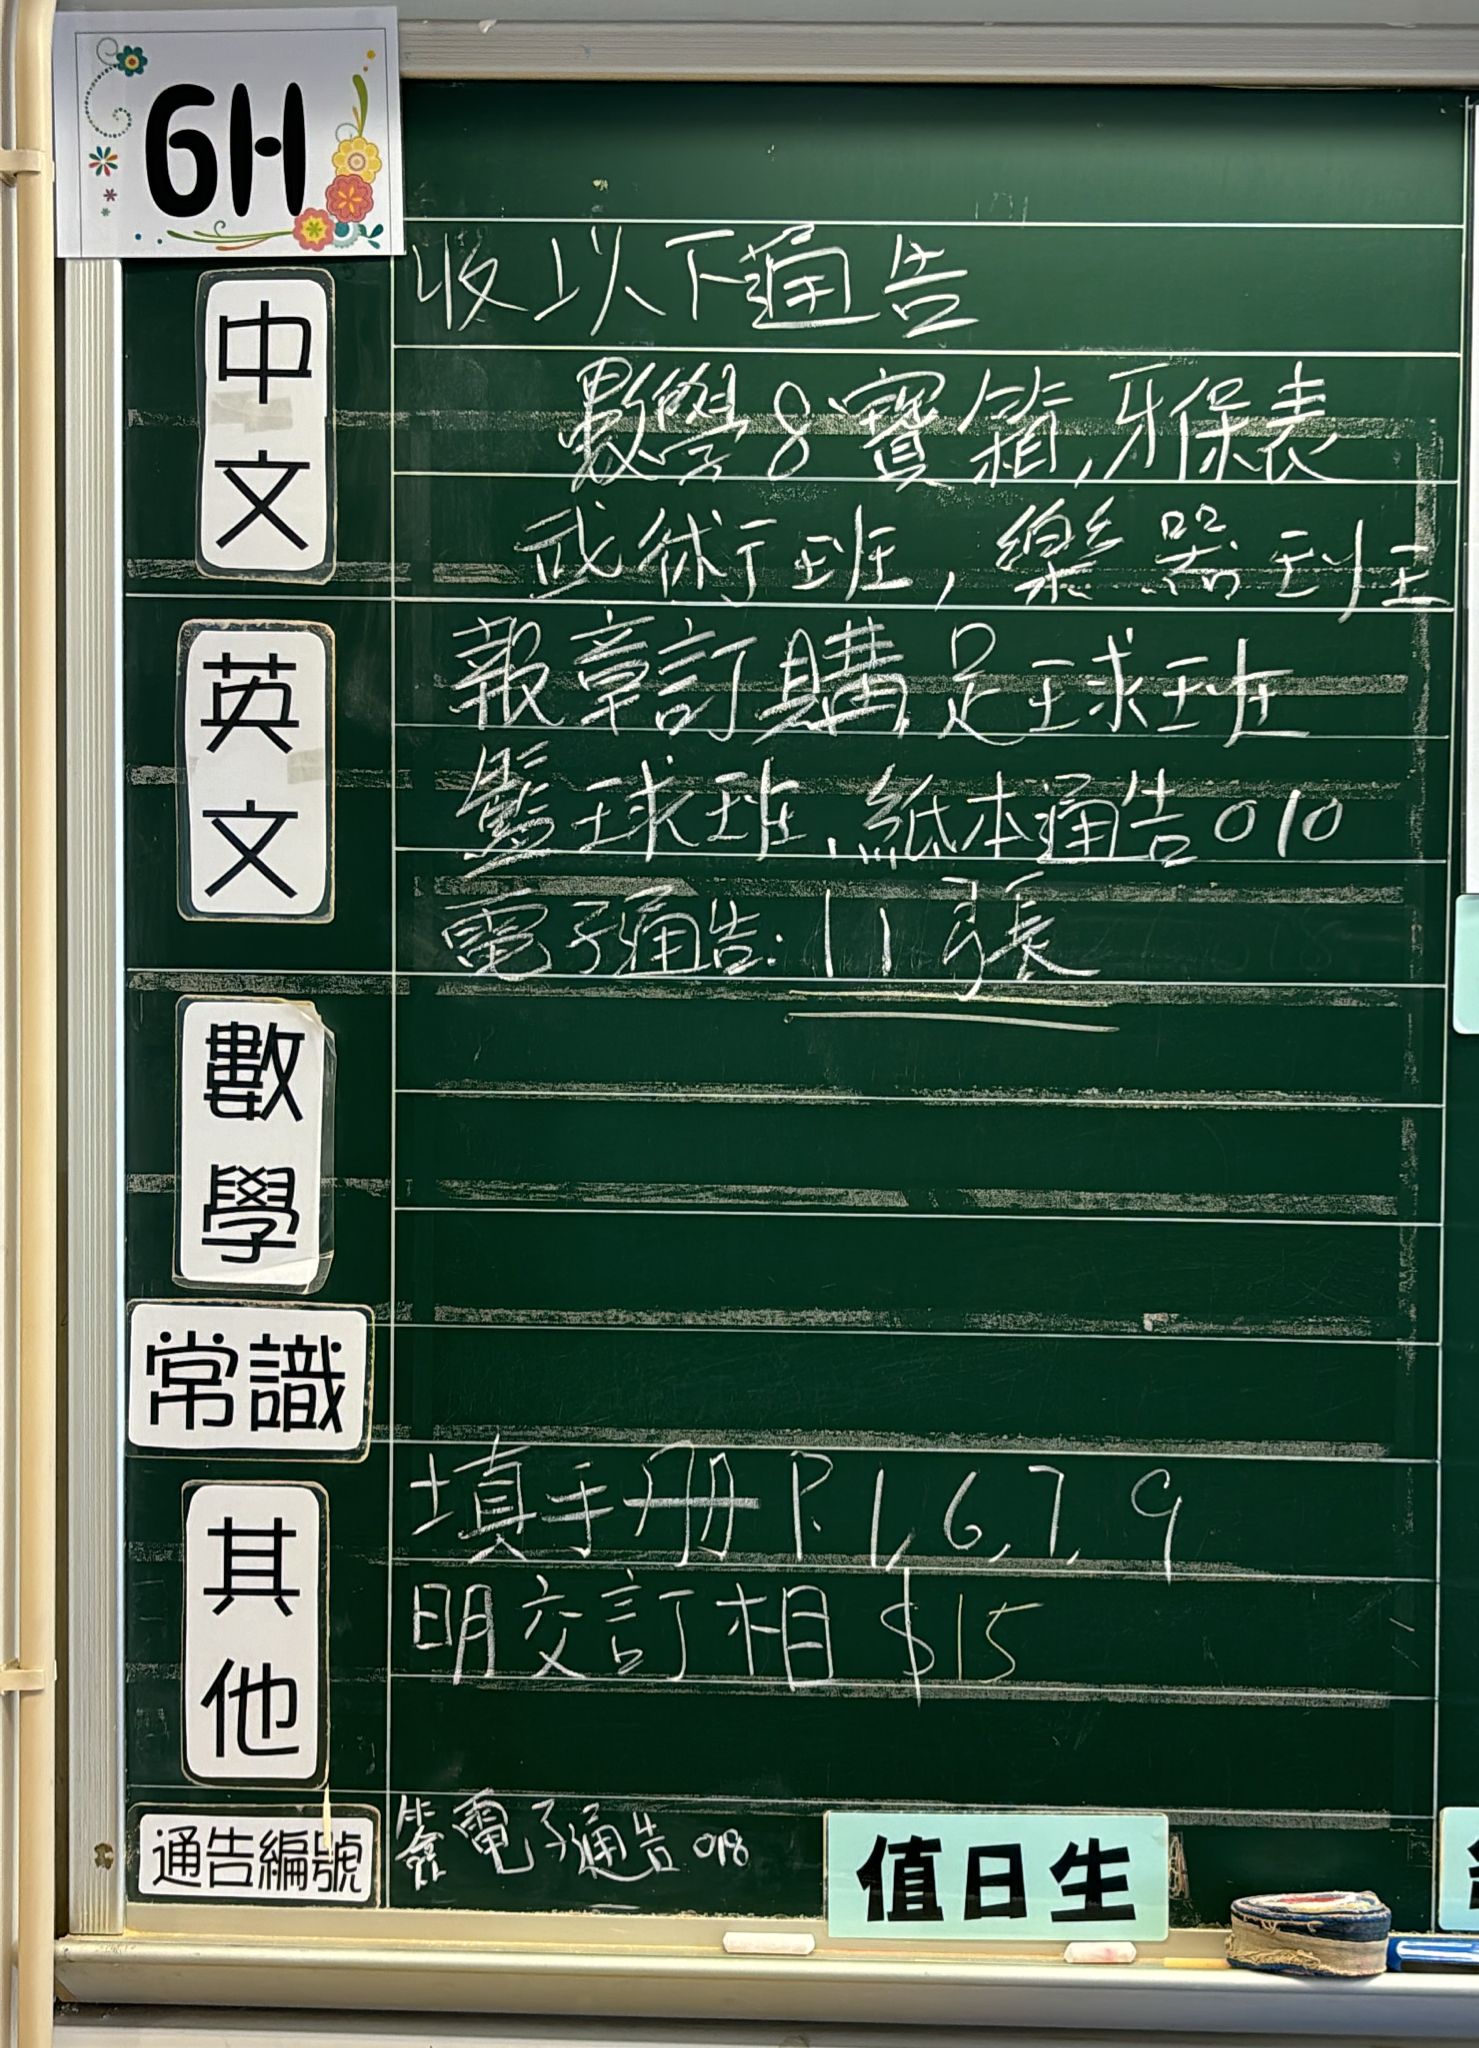 6H
收以下通告
中文
數學8寶箱,牙保表
武術班,樂器班
英文
報章訂購,足球班
籃球班,紙本通告010
電子通告:11張
數學
常識
其他
填手册P.1,6,7,9
明交訂相$15
通告編號
簽電子通告018
值日生